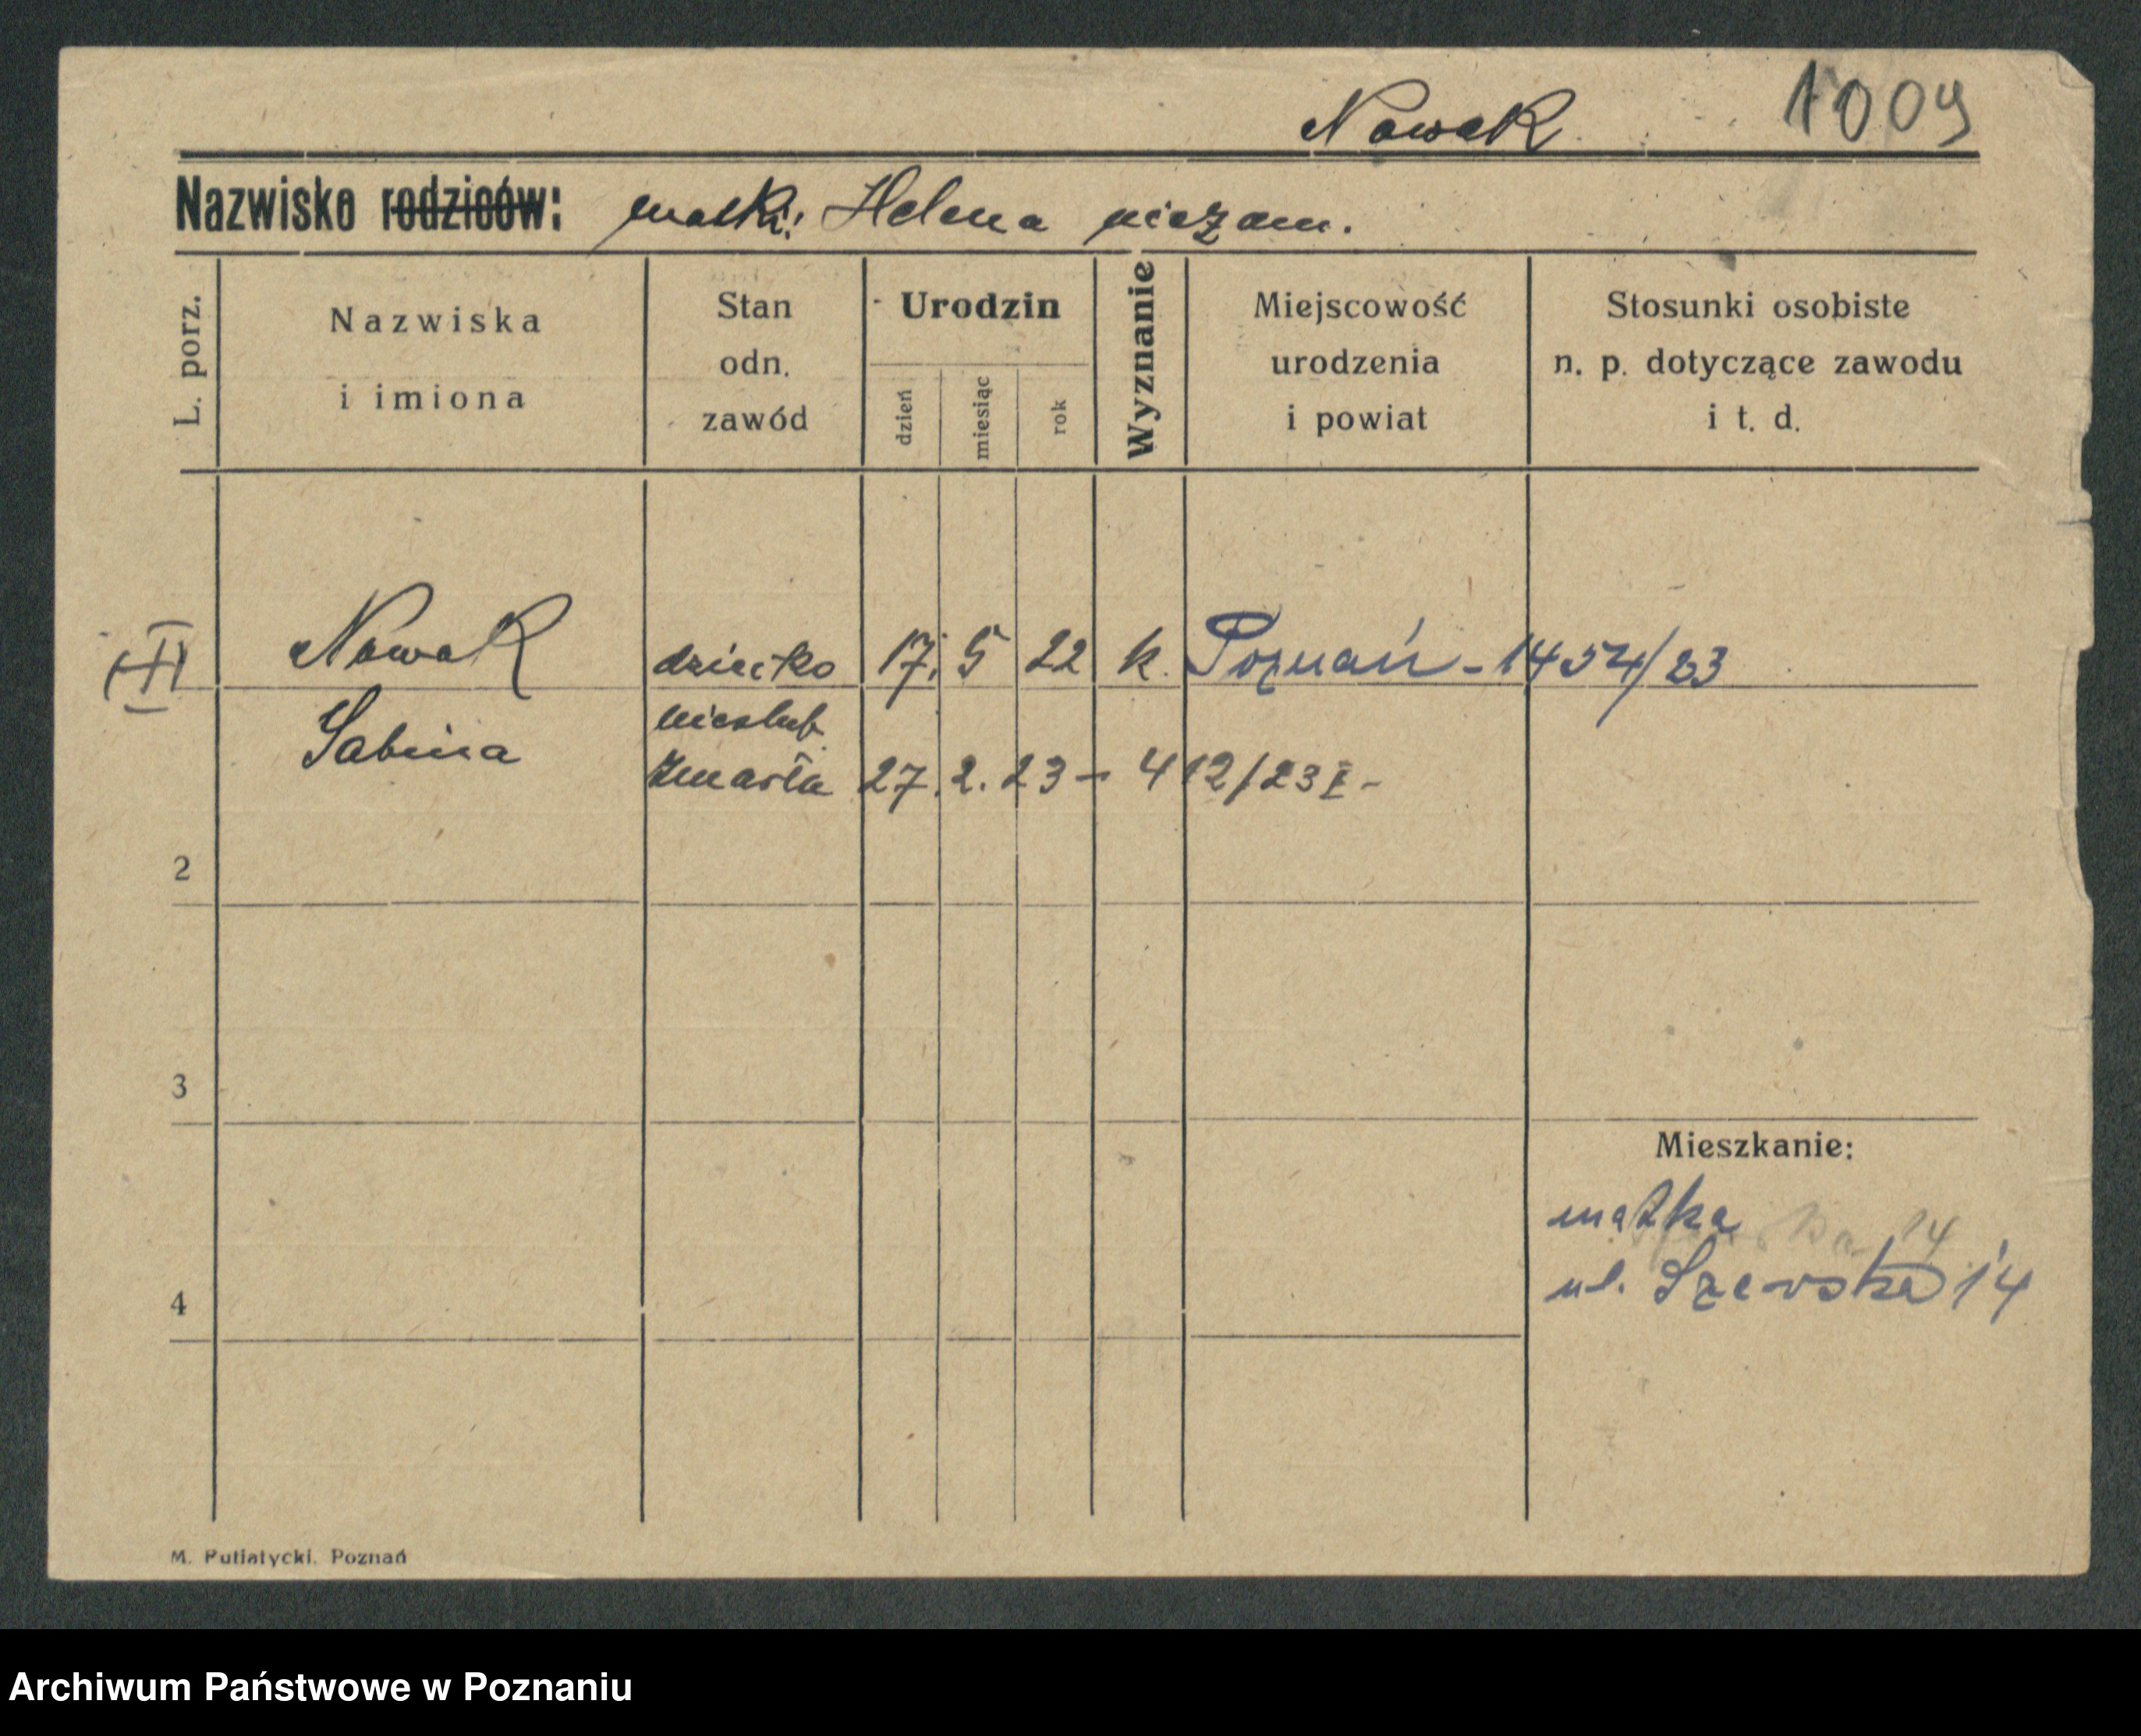 Nowak 1009
Nazwisko rodziców: matki: Helena niezam.
L. porz.
Nazwiska
i imiona
Stan
odn.
zawód
Urodzin
dzień
miesiąc
rok
Wyznanie
Miejscowość
urodzenia
i powiat
Stosunki osobiste
n. p. dotyczące zawodu
i t. d.
Nowak dziecko 17. 5 22 k. Poznań - 1454/23
Sabina nieślub.
zmarła 27. 2. 23 - 412/23 I -
2
3
Mieszkanie:
matka
ul. Szewska 14
4
M. Putiatycki. Poznań
Archiwum Państwowe w Poznaniu